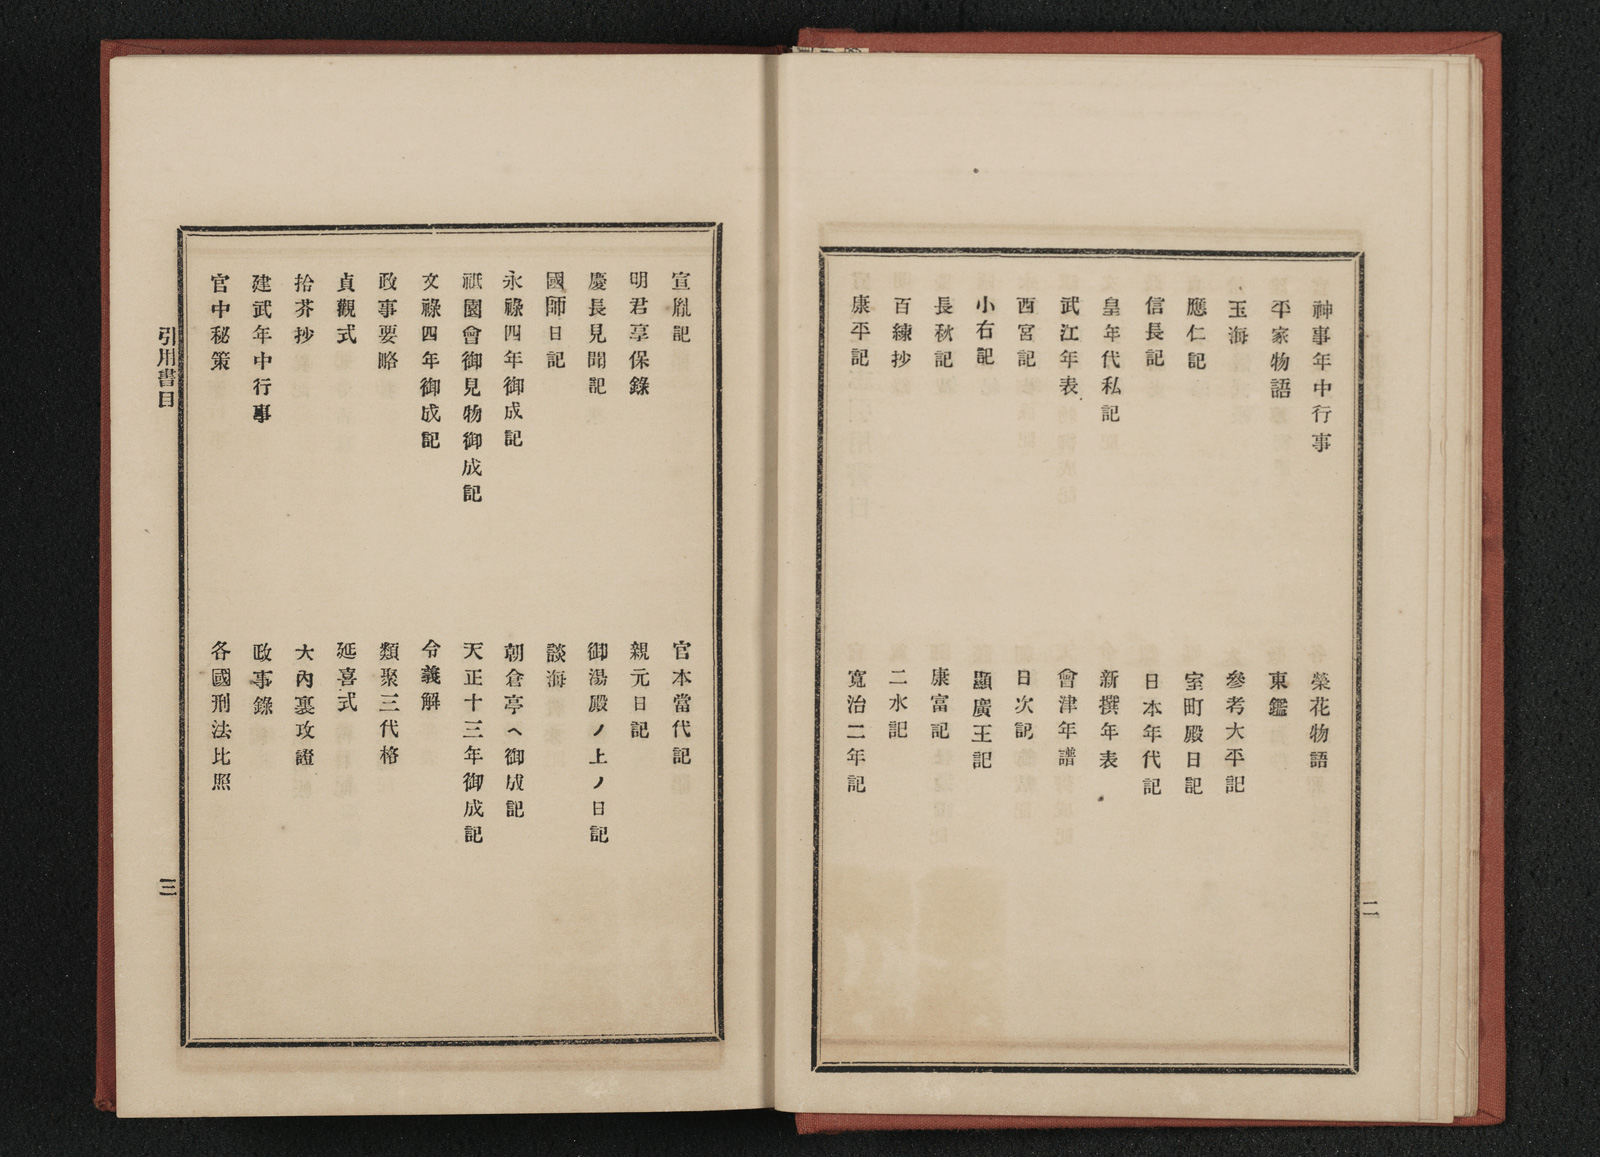 神事年中行事
榮花物語
平家物語
東鑑
玉海
參考太平記
應仁記
室町殿日記
信長記
日本年代記
皇年代私記
新撰年表
武江年表
會津年譜
西宮記
日次記
小右記
顯廣王記
長秋記
康富記
百練抄
二水記
康平記
寬治二年記
二
宣胤記
官本當代記
明君享保錄
親元日記
慶長見聞記
御湯殿ノ上ノ日記
國師日記
談海
永祿四年御成記
朝倉亭ヘ御成記
祇園會御見物御成記
天正十三年御成記
文祿四年御成記
令義解
政事要略
類聚三代格
貞觀式
延喜式
拾芥抄
大內裏攷證
建武年中行事
政事錄
官中秘策
各國刑法比照
引用書目
三